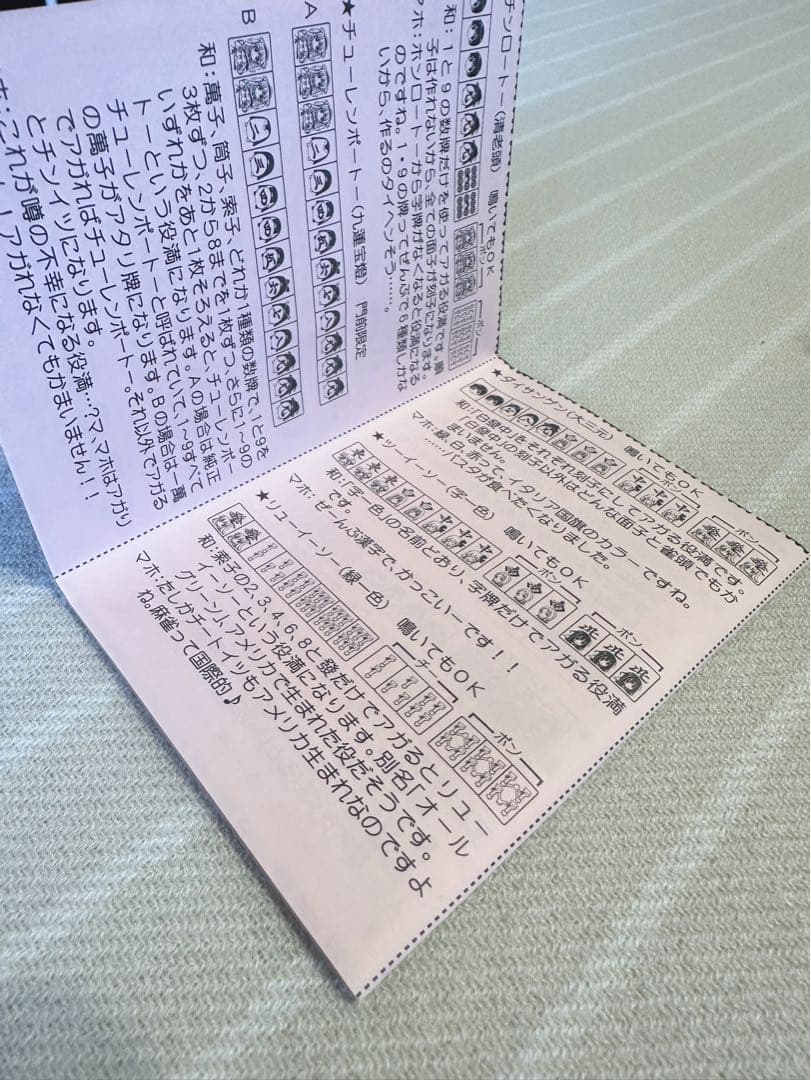 チンロートー(清老頭) 鳴いてもOK
ポン
ポン
和:1と9の数牌だけを使ってアガる役満です。順
子は作れないから、全ての面子が刻子になります。
マホ:ホンロートーから字牌がなくなると役満になる
のですね。1・9の牌ってぜんぶで6種類しかな
いから、作るのタイヘンそう……。
★チューレンポートー(九蓮宝燈) 門前限定
A
B
和:萬子、筒子、索子、どれか1種類の数牌で、1と9を
3枚ずつ、2から8までを1枚ずつ、さらに1〜9の
いずれかをあと1枚そろえると、チューレンポー
トーという役満になります。Aの場合は純正
チューレンポートーと呼ばれていて、1〜9すべて
の萬子がアタリ牌になります。Bの場合は一萬
でアガればチューレンポートー。それ以外でアガる
とチンイツになります。
これが噂の不幸になる役満…?マ、マホはアガり
アガれなくてもかまいません!!
★ダイサンゲン(大三元) 鳴いてもOK
ポン
ポン
和:「白發中」をそれぞれ刻子にしてアガる役満です。
「白發中」の刻子以外はどんな面子と雀頭でもか
まいません。
マホ:緑、白、赤って、イタリア国旗のカラーですね。
……パスタが食べたくなりました。
★ツーイーソー(字一色) 鳴いてもOK
ポン
ポン
和:「字一色」の名前どおり、字牌だけでアガる役満
マホ:ぜーんぶ漢字で、かっこいーです!!
★リューイーソー(緑一色) 鳴いてもOK
チー
ポン
和:索子の2、3、4、6、8と發だけでアガるとリュー
イーソーという役満になります。別名「オール
グリーン」、アメリカで生まれた役だそうです。
マホ:たしかチートイツもアメリカ生まれなのですよ
ね。麻雀って国際的♪